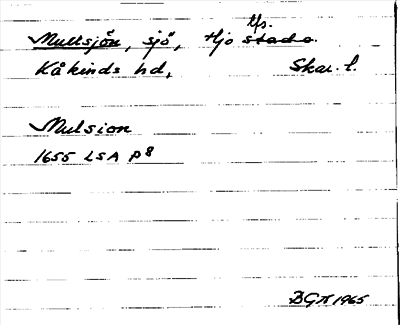 lfs.
Mullsjön, sjö, Hjo stads.
Kåkinds hd, Skar. l.
Mulsion
1655 LSA P8
BGH 1965